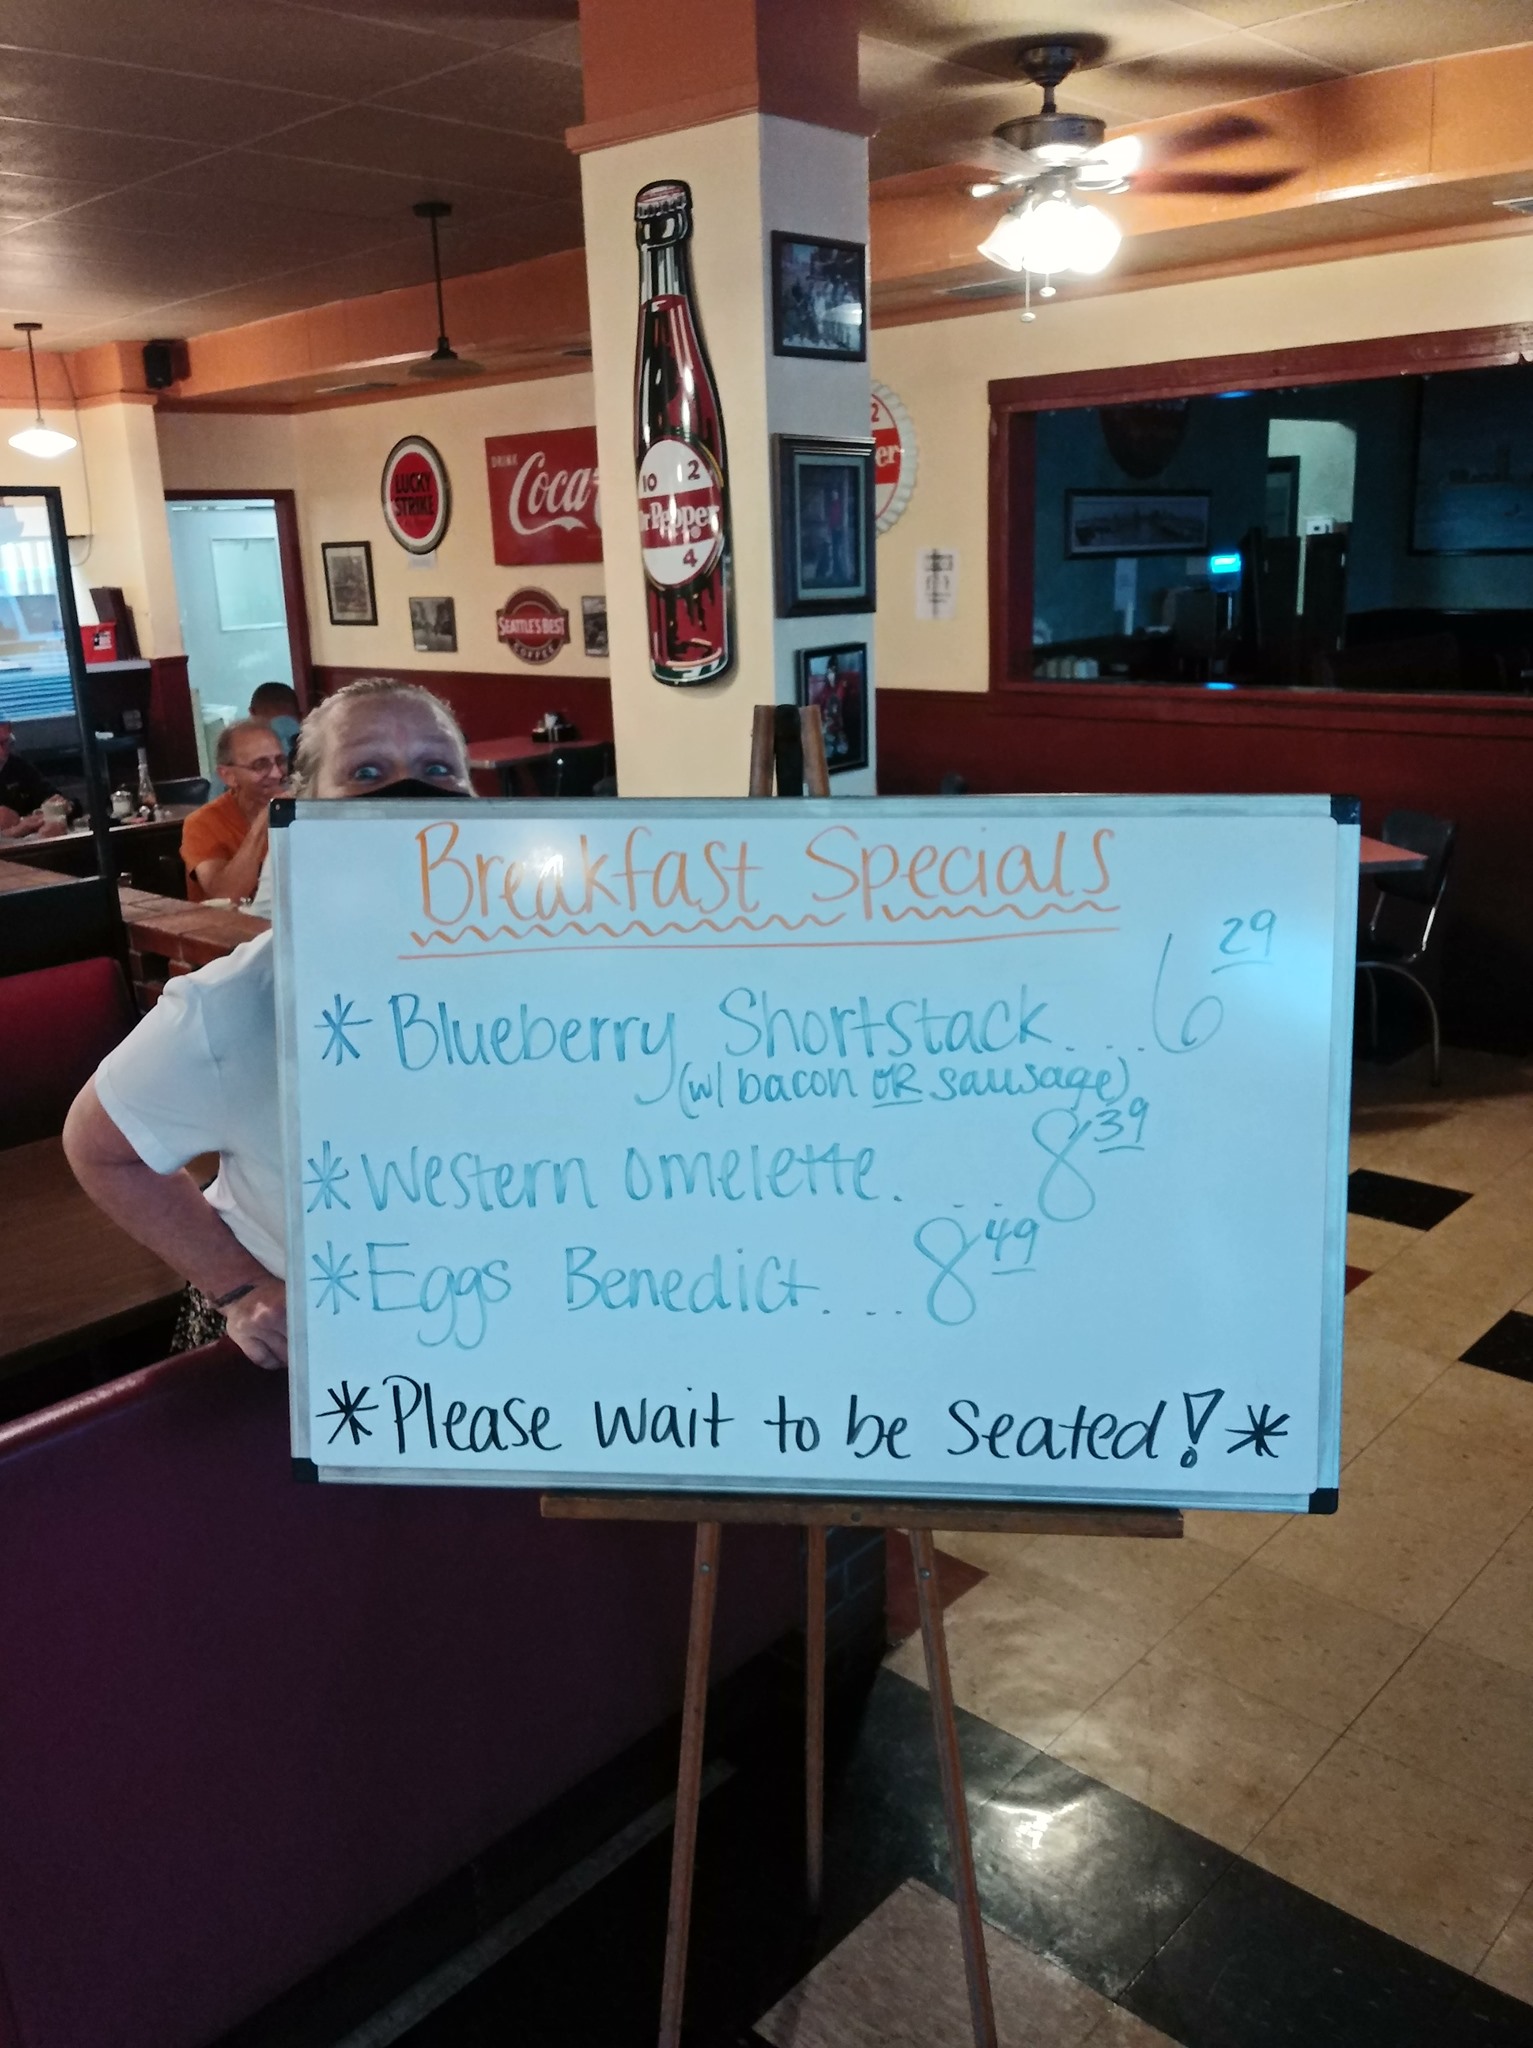 10 2
Dr Pepper
4
2
er
LUCKY
STRIKE
DRINK
Coca
SEATTLE'S BEST
COFFEE
Breakfast Specials
* Blueberry Shortstack. . . 6 29
(w/ bacon OR sausage)
* Western omelette. . . . 8 39
* Eggs Benedict. . . . 8 49
* Please wait to be seated! *